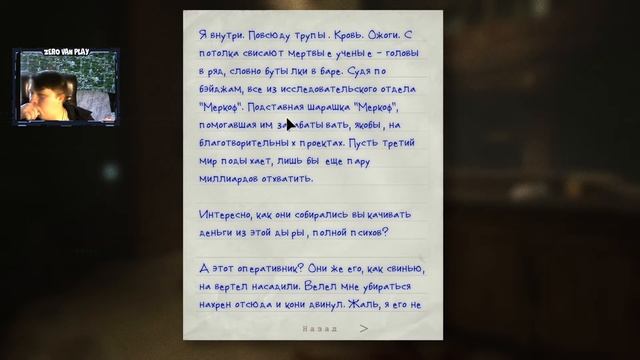 ZERO VAN PLAY
Я внутри. Повсюду трупы. Кровь. Ожоги. С
потолка свисают мертвые ученые - головы
в ряд, словно бутылки в баре. Судя по
бэйджам, все из исследовательского отдела
"Меркоф". Подставная шарашка "Меркоф",
помогавшая им зарабатывать, якобы, на
благотворительных проектах. Пусть третий
мир подыхает, лишь бы еще пару
миллиардов отхватить.
Интересно, как они собирались выкачивать
деньги из этой дыры, полной психов?
А этот оперативник? Они же его, как свинью,
на вертел насадили. Велел мне убираться
нахрен отсюда и кони двинул. Жаль, я его не
Назад >